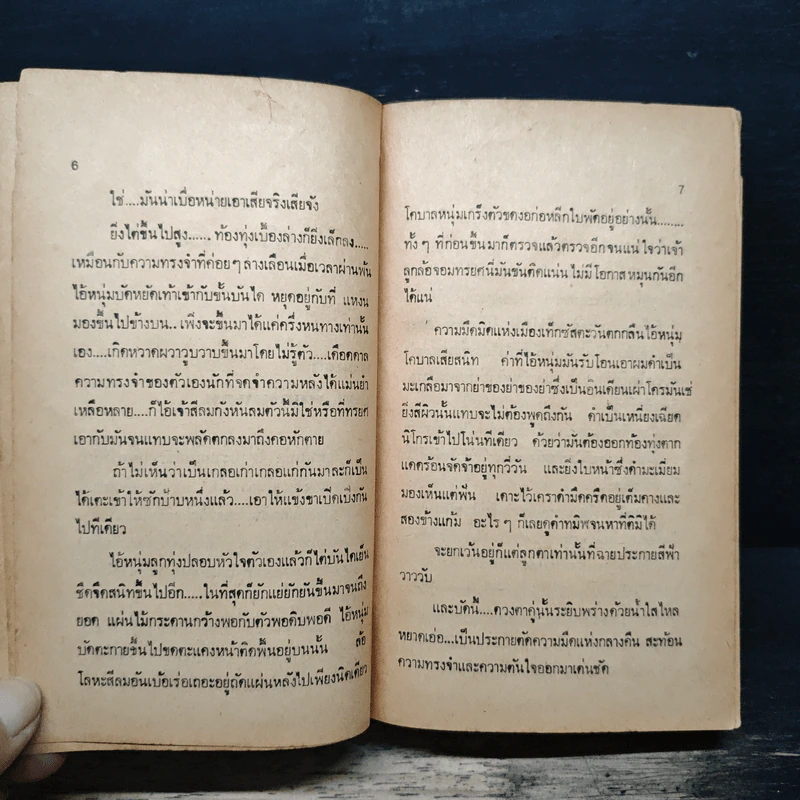 6
ใช่....มันน่าเบื่อหน่ายเอาเสียจริงเสียจัง
ยิ่งไต่ขึ้นไปสูง...... ท้องทุ่งเบื้องล่างก็ยิ่งเล็กลง.....
เหมือนกับความทรงจำที่ค่อยๆ ลางเลือนเมื่อเวลาผ่านพ้น
ไอ้หนุ่มบัดหยัดเท้าเข้ากับขั้นบันได หยุดอยู่กับที่ แหงน
มองขึ้นไปข้างบน.. เพิ่งจะขึ้นมาได้แค่ครึ่งหนทางเท่านั้น
เอง....เกิดหวาดผวาวูบวาบขึ้นมาโดยไม่รู้ตัว....เดือดดาล
ความทรงจำของตัวเองนักที่จดจำความหลังได้แม่นยำ
เหลือหลาย....ก็ไอ้เจ้าสีลมกังหันลมตัวนี้มิใช่หรือที่ทรยศ
เอากับมันจนแทบจะพลัดตกลงมาถึงคอหักตาย
ถ้าไม่เห็นว่าเป็นเกลอเก่าเกลอแก่กันมาละก็เป็น
ได้เตะเข้าให้ซักป้าบหนึ่งแล้ว....เอาให้แข้งขาเป๋เป๋งกัน
ไปทีเดียว
ไอ้หนุ่มลูกทุ่งปลอบหัวใจตัวเองแล้วก็ไต่บันไดเย็น
ชืดจืดสนิทขึ้นไปอีก.....ในที่สุดก็ยักแย่ยักยันขึ้นมาจนถึง
ยอด แผ่นไม้กระดานกว้างพอกับตัวพอดิบพอดี ไอ้หนุ่ม
บัดตะกายขึ้นไปขดตะแคงหน้าติดพื้นอยู่บนนั้น ล้อ
โลหะสีลมอันเบ้อเร่อเถอะอยู่ถัดแผ่นหลังไปเพียงนิดเดียว
7
โคบาลหนุ่มเกร็งตัวขดงอก่อหลีกใบพัดอยู่อย่างนั้น........
ทั้งๆ ที่ก่อนขึ้นมาก็ตรวจแล้วตรวจอีกจนแน่ใจว่าเจ้า
ลูกล้อจอมทรยศนี่มันขันติดแน่น ไม่มีโอกาสหมุนกันอีก
ได้แน่
ความมืดมิดแห่งเมืองเท็กซัสตะวันตกกลืนไอ้หนุ่ม
โคบาลเสียสนิท ค่าที่ไอ้หนุ่มมันรับโอนเอาผมดำเป็น
มะเกลือมาจากย่าของย่าของย่าซึ่งเป็นอินเดียนเผ่าโครมันเช่
ยิ่งสีผิวนั้นแทบจะไม่ต้องพูดถึงกัน ดำเป็นเหนี่ยงเฉียด
นิโกรเข้าไปโน่นทีเดียว ด้วยว่ามันต้องออกท้องทุ่งตาก
แดดร้อนจัดจ้าอยู่ทุกวี่วัน และยิ่งใบหน้าซึ่งดำมะเมี่ยม
มองเห็นแต่ฟัน เคาะไว้เคราดำมืดครืดอยู่เต็มคางและ
สองข้างแก้ม อะไรๆ ก็เลยดูดำทมิฬจนหาที่ติมิได้
จะยกเว้นอยู่ก็แต่ลูกตาเท่านั้นที่ฉายประกายสีฟ้า
วาววับ
และบัดนี้....ดวงตาคู่นั้นระยิบพร่างด้วยน้ำใสไหล
หยาดเอ่อ...เป็นประกายตัดความมืดแห่งกลางคืน สะท้อน
ความทรงจำและความตื้นใจออกมาเด่นชัด